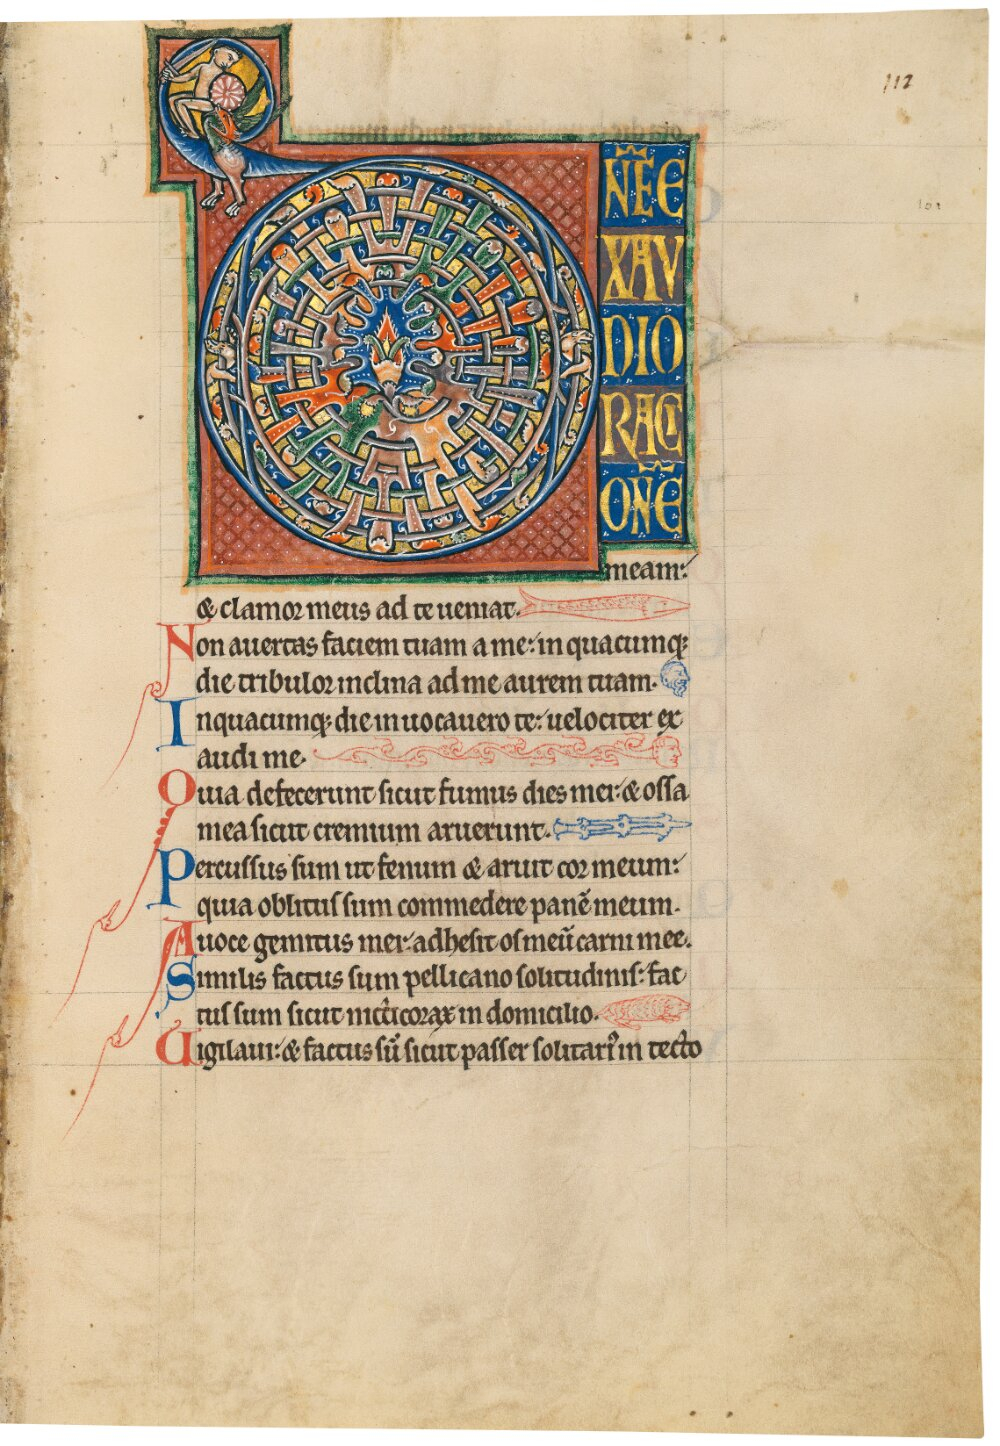 112
101
D
NĒE
XAU
DIO
RACI
ONĒ
meam:
& clamor meus ad te ueniat.
Non auertas faciem tuam a me: in quacumq;
die tribulor inclina ad me aurem tuam.
Inquacumq; die inuocauero te: uelociter ex
audi me.
Quia defecerunt sicut fumus dies mei: & ossa
mea sicut cremium aruerunt.
Percussus sum ut fenum & aruit cor meum:
quia oblitus sum commedere panē meum.
Auoce gemitus mei: adhesit os meū carni mee.
Similis factus sum pellicano solitudinis: fac
tus sum sicut nicticorax in domicilio.
Uigilaui: & factus sū sicut passer solitari⁹ in tecto